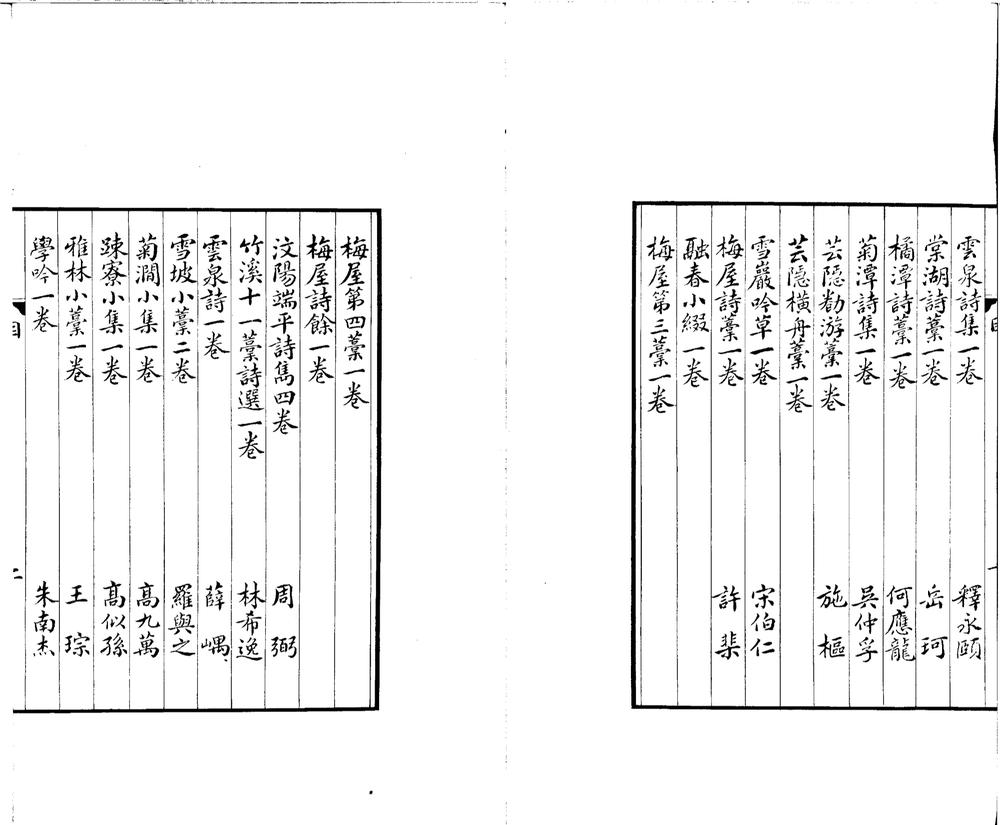 雲泉詩集一卷 釋永頤
棠湖詩藁一卷 岳珂
橘潭詩藁一卷 何應龍
菊潭詩集一卷 吳仲孚
芸隱勸游藁一卷 施樞
芸隱橫舟藁一卷
雪巖吟草一卷 宋伯仁
梅屋詩藁一卷 許棐
融春小綴一卷
梅屋第三藁一卷
梅屋第四藁一卷
梅屋詩餘一卷
汶陽端平詩雋四卷 周弼
竹溪十一藁詩選一卷 林希逸
雲泉詩一卷 薛嵎
雪坡小藁二卷 羅與之
菊澗小集一卷 高九萬
疎寮小集一卷 高似孫
雅林小藁一卷 王琮
學吟一卷 朱南杰
目 二